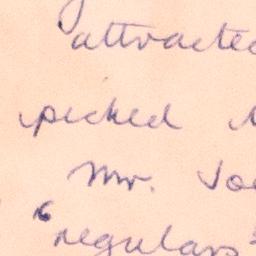 attracted
picked
Mr. Joe
"regulars"